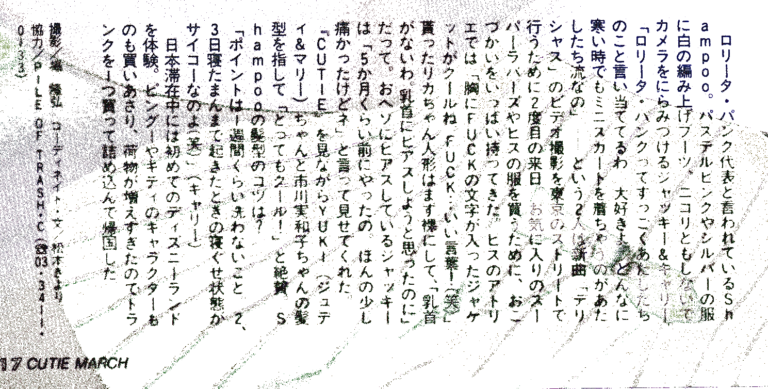 ロリータ・パンク代表と言われているSh
ampoo。パステルピンクやシルバーの服
に白の編み上げブーツ。ニコリともしないで
カメラをにらみつけるジャッキー&キャリー。
「ロリータ・パンクってすっごくあたしたち
のこと言い当ててるわ 大好きよ どんなに
寒い時でもミニスカートを着ちゃうのがあた
したち流なの」――という2人は新曲「デリ
シャス」のビデオ撮影を東京のストリートで
行うために2度目の来日 お気に入りのスー
パーラバーズやヒスの服を買うために、おこ
づかいをいっぱい持ってきた。ヒスのアトリ
エでは「胸にFUCKの文字が入ったジャケ
ットがクールね FUCK…いい言葉!(笑)」
貰ったリカちゃん人形はまず裸にして、「乳首
がないわ。乳首にピアスしようと思ったのに」
だって。おヘソにピアスしているジャッキー
は「5か月くらい前にやったの。ほんの少し
痛かったけどネ」と言って見せてくれた
『CUTIE』を見ながらYUKI(ジュデ
ィ&マリー)ちゃんと市川実和子ちゃんの髪
型を指して「とってもクール!」と絶賛 S
hampooの髪型のコツは?
「ポイントは1週間くらい洗わないこと 2、
3日寝たまんまで起きたときの寝ぐせ状態が
サイコーなのよ(笑)」(キャリー)
日本滞在中には初めてのディズニーランド
を体験。ピングーやキティのキャラクターも
のも買いあさり、荷物が増えすぎたのでトラ
ンクを1つ買って詰め込んで帰国した
撮影/堀 隆弘 コーディネイト・文 松本きより
協力/PILE OF TRASH C ☎03・3411・
0133)
17 CUTIE MARCH